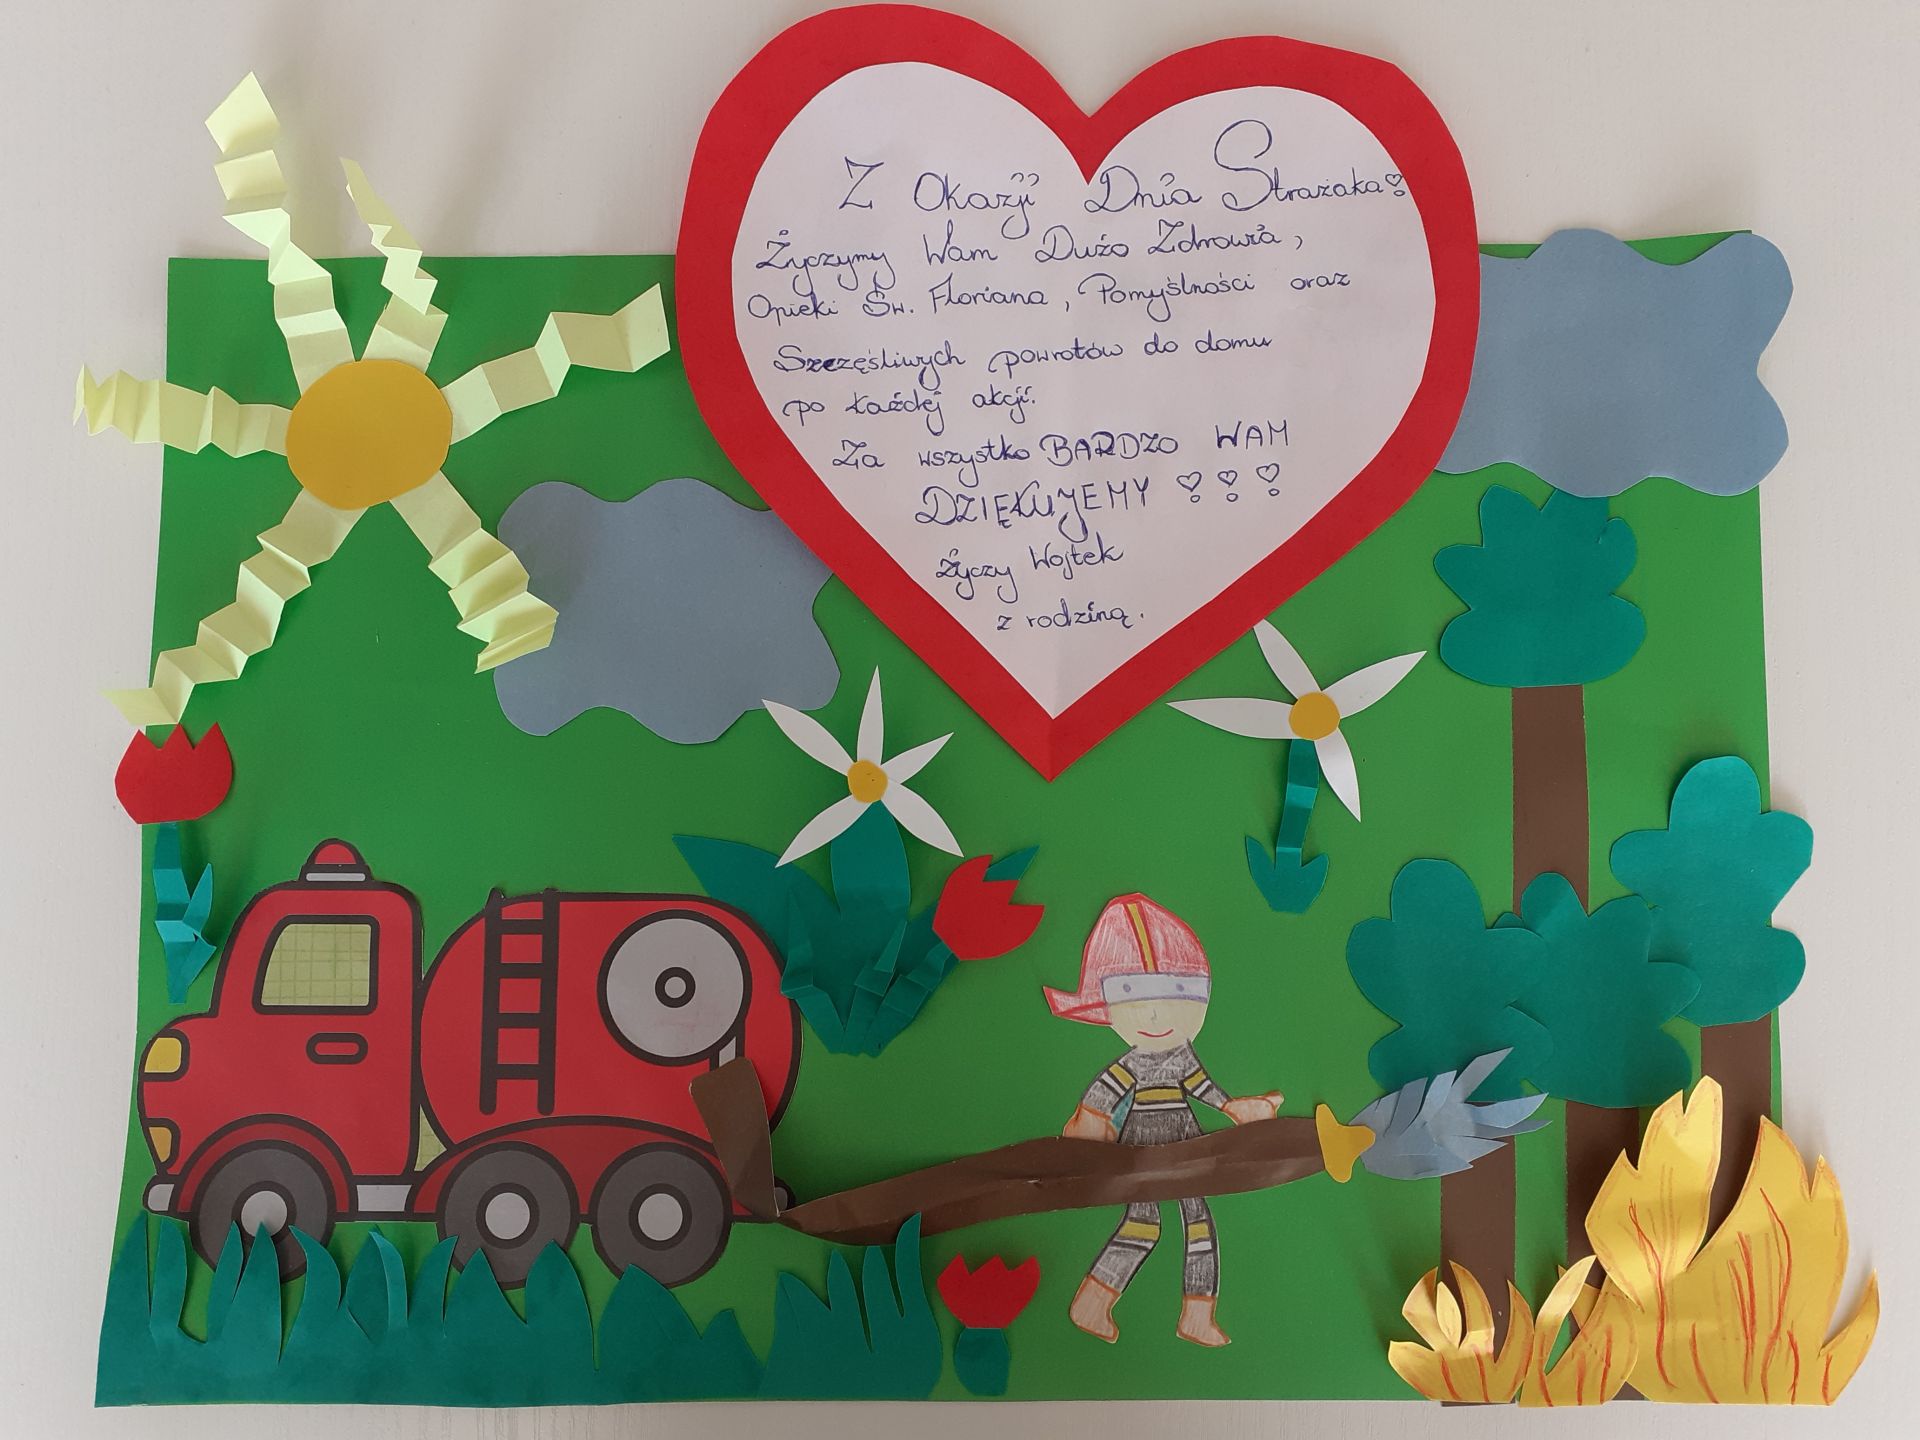 Z Okazji Dnia Strażaka!
Życzymy Wam Dużo Zdrowia,
Opieki Św. Floriana, Pomyślności oraz
Szczęśliwych powrotów do domu
po każdej akcji.
Za wszystko BARDZO WAM
DZIĘKUJEMY !!!
Życzy Wojtek
z rodziną.